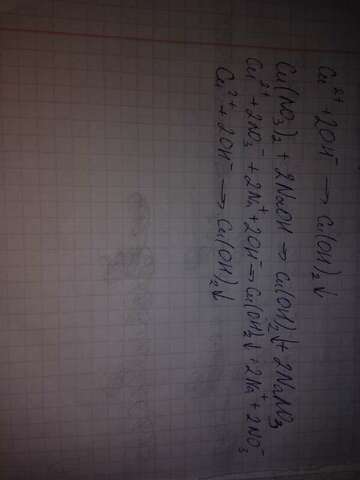 Cu²⁺ + 2OH⁻ → Cu(OH)₂↓
Cu(NO₃)₂ + 2NaOH → Cu(OH)₂↓ + 2NaNO₃
Cu²⁺ + 2NO₃⁻ + 2Na⁺ + 2OH⁻ → Cu(OH)₂↓ + 2Na⁺ + 2NO₃⁻
Cu²⁺ + 2OH⁻ → Cu(OH)₂↓